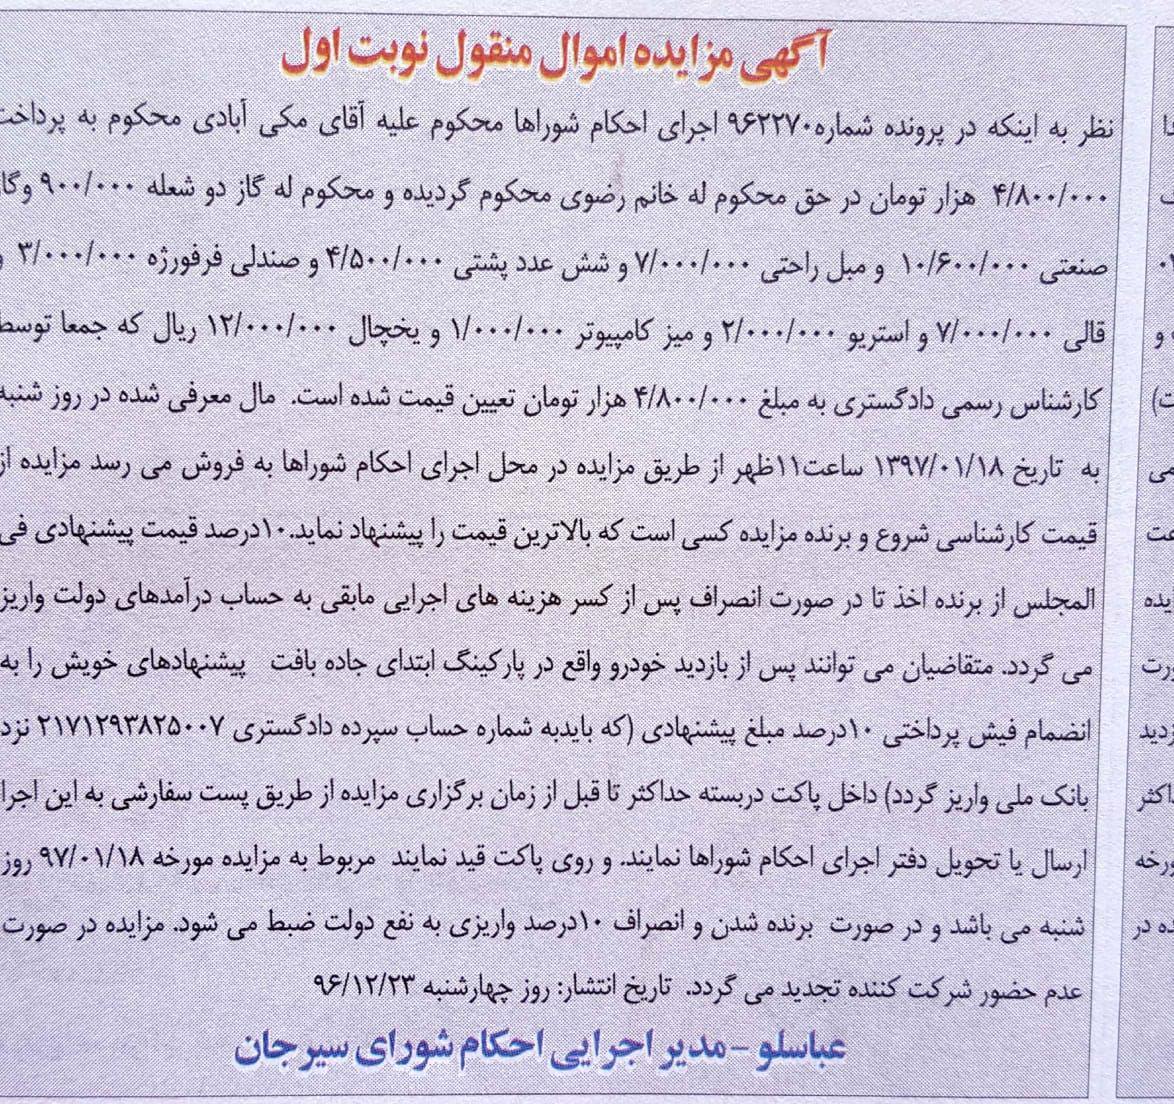 آگهی مزایده اموال منقول نوبت اول
نظر به اینکه در پرونده شماره۹۶۲۲۷۰ اجرای احکام شوراها محکوم علیه آقای مکی آبادی محکوم به پرداخت
۴/۸۰۰/۰۰۰ هزار تومان در حق محکوم له خانم رضوی محکوم گردیده و محکوم له گاز دو شعله ۹۰۰/۰۰۰ وگاز
صنعتی ۱۰/۶۰۰/۰۰۰ و مبل راحتی ۷/۰۰۰/۰۰۰ و شش عدد پشتی ۴/۵۰۰/۰۰۰ و صندلی فرفورژه ۳/۰۰۰/۰۰۰ و
قالی ۷/۰۰۰/۰۰۰ و استریو ۲/۰۰۰/۰۰۰ و میز کامپیوتر ۱/۰۰۰/۰۰۰ و یخچال ۱۲/۰۰۰/۰۰۰ ریال که جمعا توسط
کارشناس رسمی دادگستری به مبلغ ۴/۸۰۰/۰۰۰ هزار تومان تعیین قیمت شده است. مال معرفی شده در روز شنبه
به تاریخ ۱۳۹۷/۰۱/۱۸ ساعت۱۱ظهر از طریق مزایده در محل اجرای احکام شوراها به فروش می رسد مزایده از
قیمت کارشناسی شروع و برنده مزایده کسی است که بالاترین قیمت را پیشنهاد نماید.۱۰درصد قیمت پیشنهادی فی
المجلس از برنده اخذ تا در صورت انصراف پس از کسر هزینه های اجرایی مابقی به حساب درآمدهای دولت واریز
می گردد. متقاضیان می توانند پس از بازدید خودرو واقع در پارکینگ ابتدای جاده بافت پیشنهادهای خویش را به
انضمام فیش پرداختی ۱۰درصد مبلغ پیشنهادی (که بایدبه شماره حساب سپرده دادگستری ۲۱۷۱۲۹۳۸۲۵۰۰۷ نزد
بانک ملی واریز گردد) داخل پاکت دربسته حداکثر تا قبل از زمان برگزاری مزایده از طریق پست سفارشی به این اجرا
ارسال یا تحویل دفتر اجرای احکام شوراها نمایند. و روی پاکت قید نمایند مربوط به مزایده مورخه ۹۷/۰۱/۱۸ روز
شنبه می باشد و در صورت برنده شدن و انصراف ۱۰درصد واریزی به نفع دولت ضبط می شود. مزایده در صورت
عدم حضور شرکت کننده تجدید می گردد. تاریخ انتشار: روز چهارشنبه ۹۶/۱۲/۲۳
عباسلو – مدیر اجرایی احکام شورای سیرجان